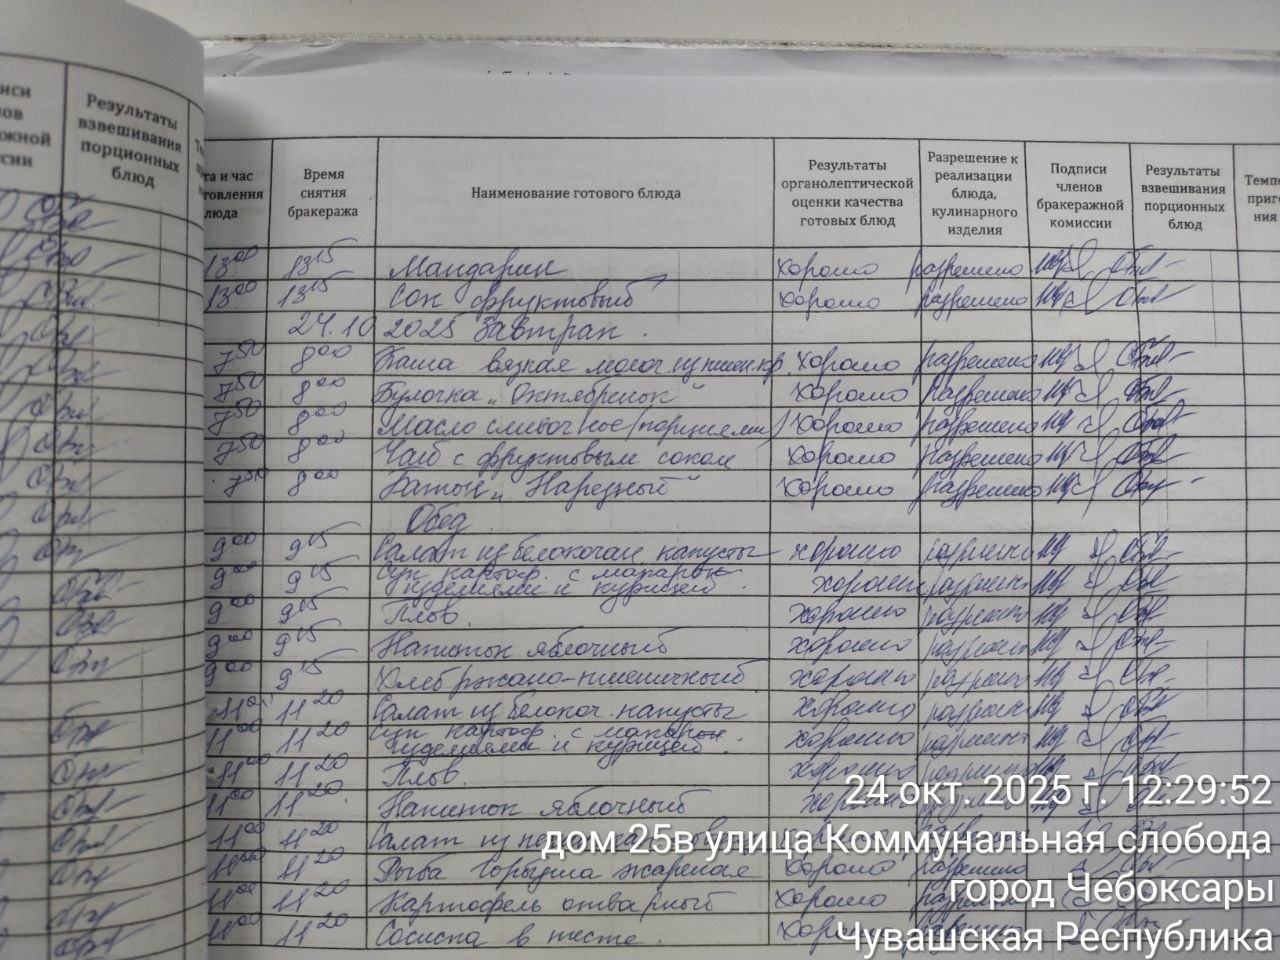 Результаты взвешивания порционных блюд
та и час товления люда
Время снятия бракеража
Наименование готового блюда
Результаты органолептической оценки качества готовых блюд
Разрешение к реализации блюда, кулинарного изделия
Подписи членов бракеражной комиссии
Результаты взвешивания порционных блюд
13⁰⁰ 13¹⁵ Мандарин хорошо разрешено
13⁰⁰ 13¹⁵ Сок фруктовый хорошо разрешено
24.10 2025 Завтрак.
7⁵⁰ 8⁰⁰ Каша вязкая молоч. из пшен. кр. хорошо разрешено
7⁵⁰ 8⁰⁰ Булочка „Октябренок" хорошо разрешено
7⁵⁰ 8⁰⁰ Масло сливочное (порциями) хорошо разрешено
7⁵⁰ 8⁰⁰ Чай с фруктовым соком хорошо разрешено
7⁵⁰ 8⁰⁰ Батон „Нарезный" хорошо разрешено
Обед
9⁰⁰ 9¹⁵ Салат из белокочан капусты хорошо разрешено
9⁰⁰ 9¹⁵ Суп картоф. с макарон изделиями и курицей. хорошо разрешено
9⁰⁰ 9¹⁵ Плов. хорошо разрешено
9⁰⁰ 9¹⁵ Напиток яблочный хорошо разрешено
9⁰⁰ 9¹⁵ Хлеб ржано-пшеничный хорошо разрешено
11⁰⁰ 11²⁰ Салат из белокоч. капусты хорошо разрешено
11⁰⁰ 11²⁰ Суп картоф. с макарон изделиями и курицей. хорошо разрешено
11⁰⁰ 11²⁰ Плов. хорошо разрешено
11⁰⁰ 11²⁰ Напиток яблочный хорошо
11⁰⁰ 11²⁰ Салат из
11⁰⁰ 11²⁰ Рыба Горбуша жареная хорошо разрешено
11⁰⁰ 11²⁰ Картофель отварный хорошо разрешено
11⁰⁰ 11²⁰ Сосиска в тесте. хорошо
24 окт. 2025 г. 12:29:52
дом 25в улица Коммунальная слобода
город Чебоксары
Чувашская Республика